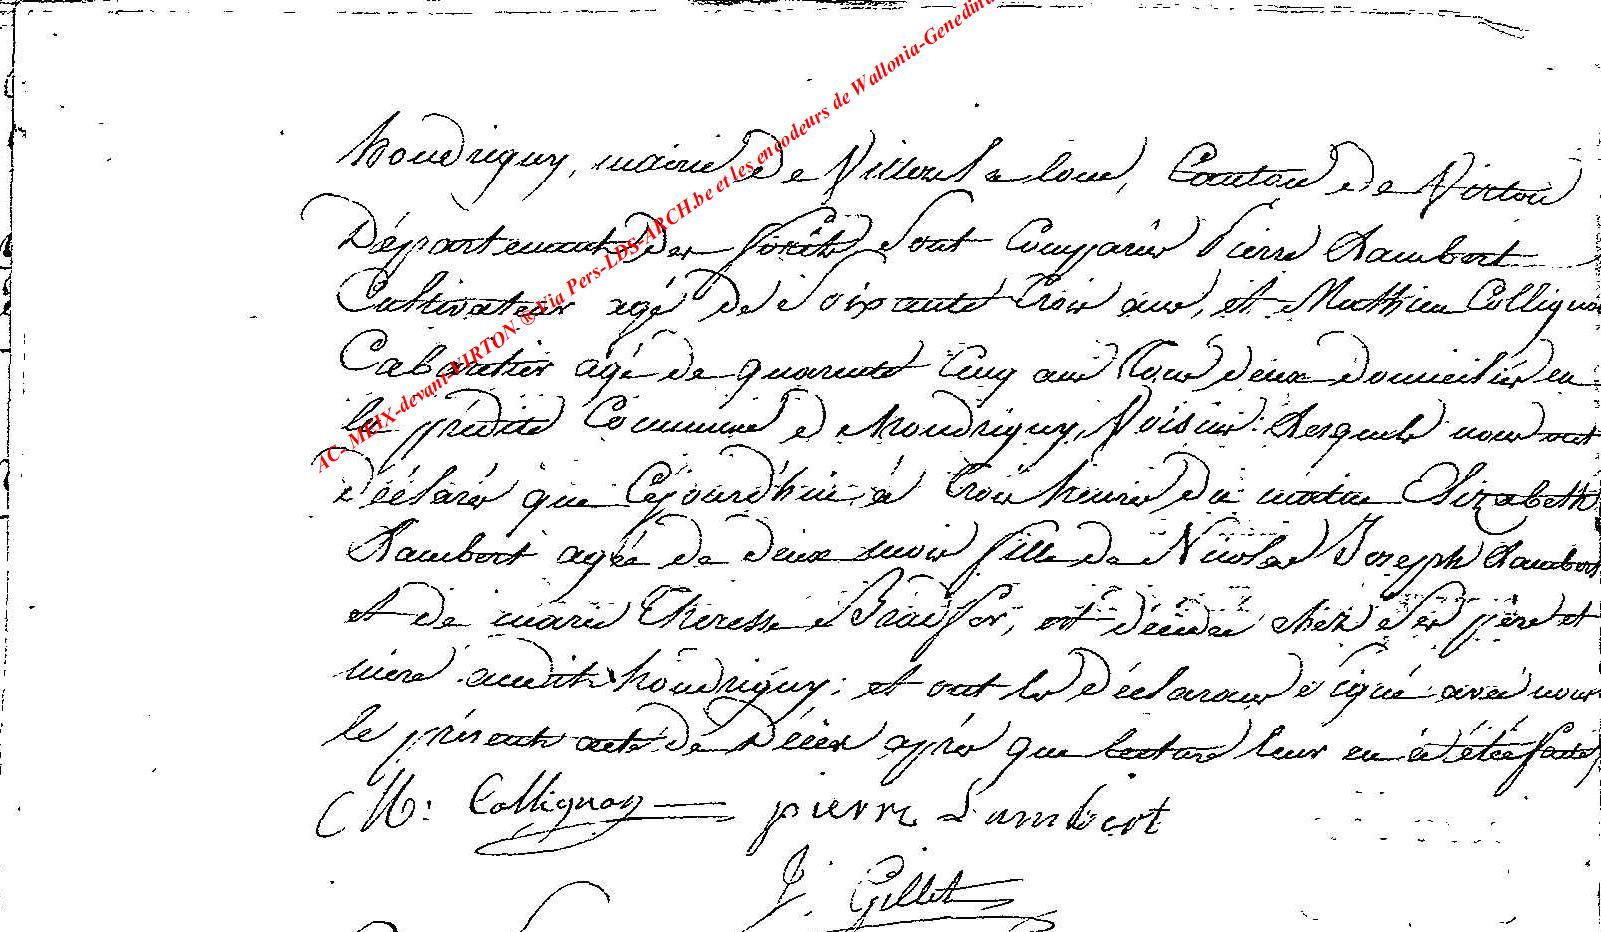 houdrigny, mairie de Villers la loue, Canton de Virton
Département des forêts, sont Comparus Pierre Lambert
Cultivateur agé de soixante trois ans, et Mathieu Collignon
Cabaretier agé de quarante cinq ans tous deux domiciliés en
la prédite Commune de houdrigny, Voisins. Lesquels nous ont
déclarés que Cejourd'hui à trois heures du matin Elizabeth
Lambert agée de deux mois fille de Nicolas Joseph Lambert
et de marie Theresse, est décédée chez ses père et
mère audit houdrigny; et ont les déclarans signé avec nous
le présent acte de Décès après que lecture leur en a été faite,
M: Collignon pierre Lambert
J. Gillet
AC_MEIX-devant-VIRTON ® Via Pers-LDS-ARCH.be et les encodeurs de Wallonia-Genedin